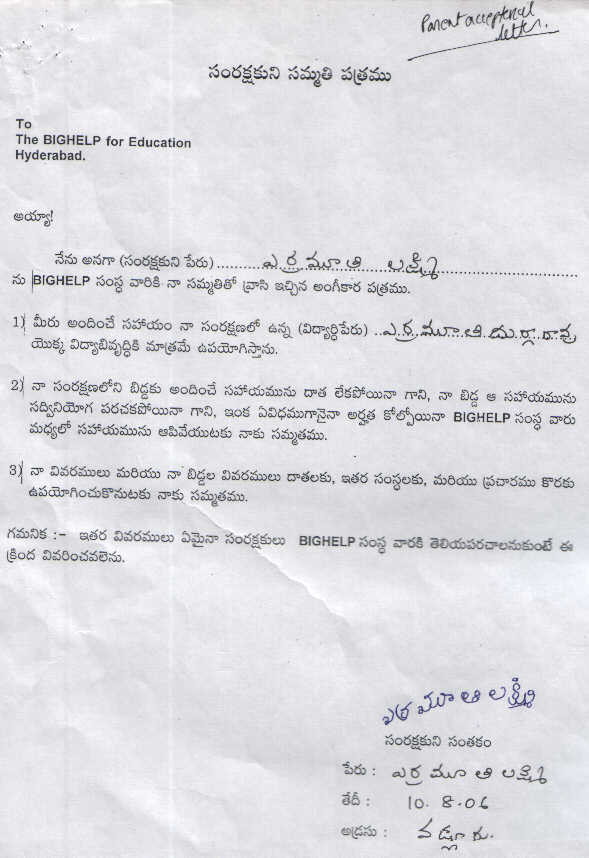 Parent acceptencal
letter.
సంరక్షకుని సమ్మతి పత్రము
To
The BIGHELP for Education
Hyderabad.
అయ్యా!
నేను అనగా (సంరక్షకుని పేరు) ఎర్ర మూతి లక్ష్మి
ను BIGHELP సంస్థ వారికి నా సమ్మతితో వ్రాసి ఇచ్చిన అంగీకార పత్రము.
1) మీరు అందించే సహాయం నా సంరక్షణలో ఉన్న (విద్యార్థిపేరు) ఎర్ర మూతి దుర్గా రావు
యొక్క విద్యాబివృద్ధికి మాత్రమే ఉపయోగిస్తాను.
2) నా సంరక్షణలోని బిడ్డకు అందించే సహాయమును దాత లేకపోయినా గాని, నా బిడ్డ ఆ సహాయమును
సద్వినియోగ పరచకపోయినా గాని, ఇంక ఏవిధముగానైనా అర్హత కోల్పోయినా BIGHELP సంస్థ వారు
మధ్యలో సహాయమును ఆపివేయుటకు నాకు సమ్మతము.
3) నా వివరములు మరియు నా బిడ్డల వివరములు దాతలకు, ఇతర సంస్థలకు, మరియు ప్రచారము కొరకు
ఉపయోగించుకొనుటకు నాకు సమ్మతము.
గమనిక :- ఇతర వివరములు ఏమైనా సంరక్షకులు BIGHELP సంస్థ వారకి తెలియపరచాలనుకుంటే ఈ
క్రింద వివరించవలెను.
ఎర్ర మూతి లక్ష్మి
సంరక్షకుని సంతకం
పేరు : ఎర్ర మూతి లక్ష్మి
తేదీ : 10. 8.06
అడ్రసు : వడ్లూరు.